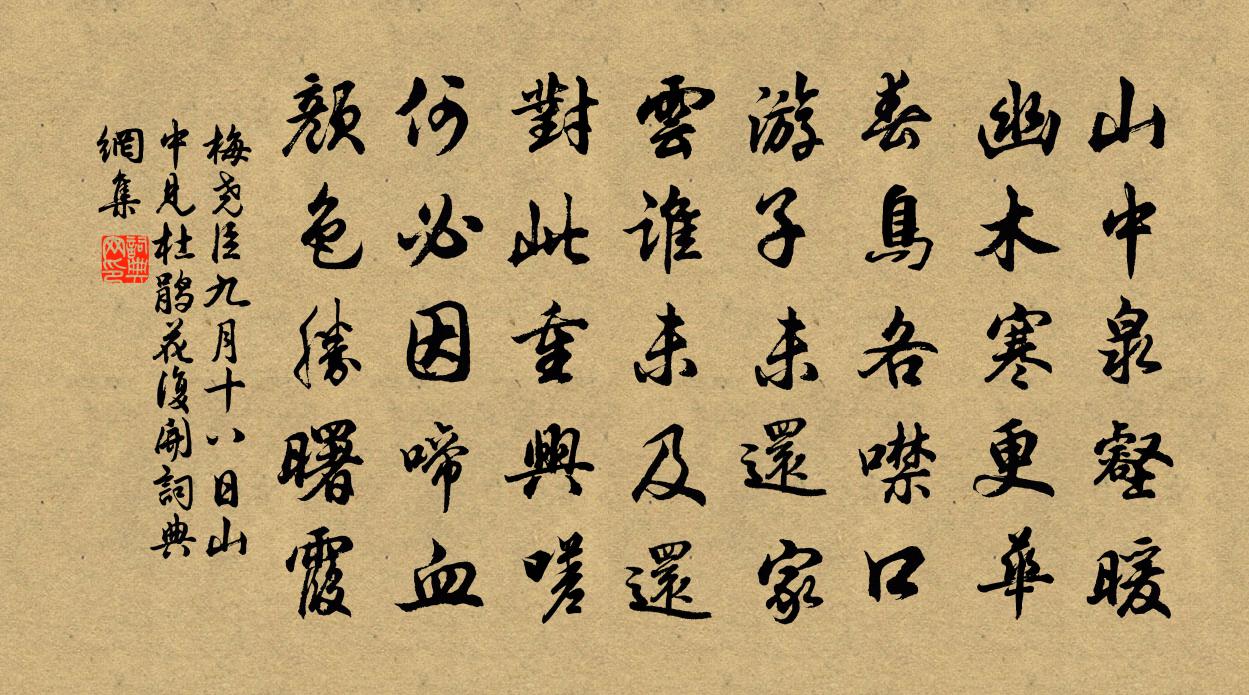 山中泉壑暖
幽木寒更華
春鳥各噤口
游子未還家
雲誰未及還
對此重興嗟
何必因啼血
顏色勝曙霞
梅尧臣九月十八日山
中見杜鹃花復開詞典
網集
詞典
网印